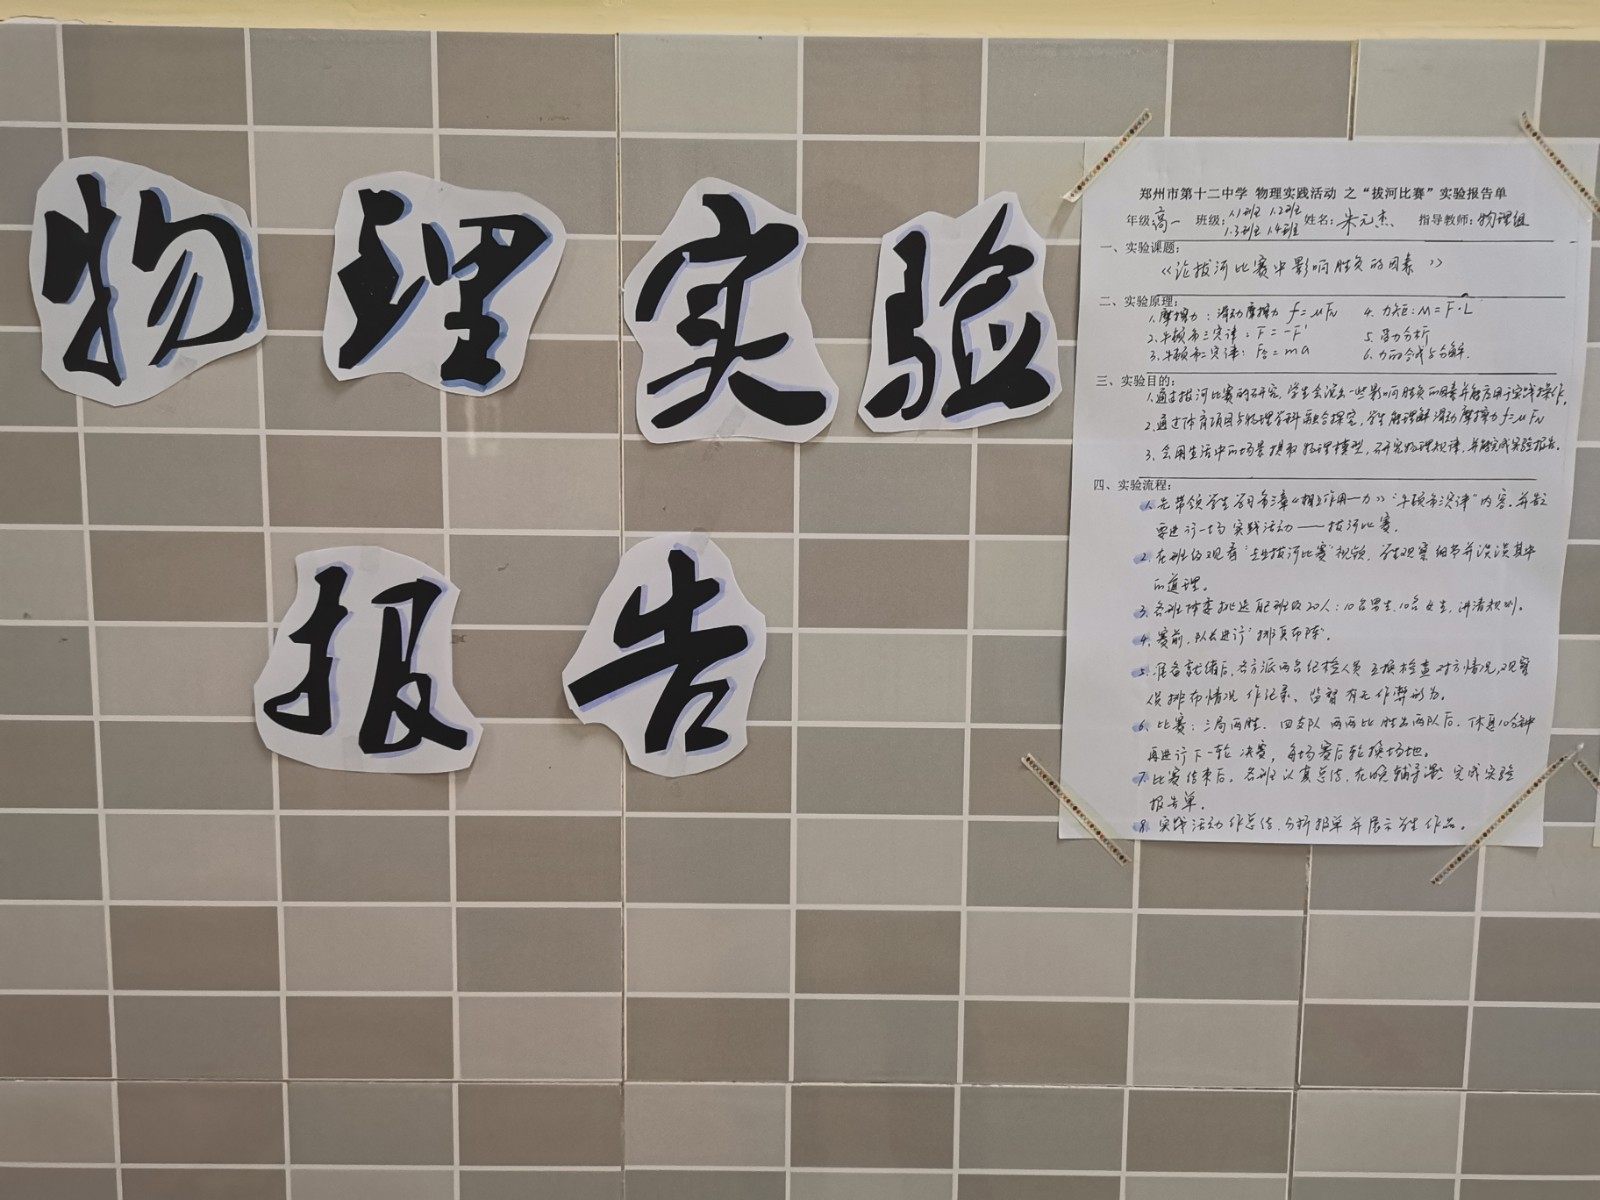 物理实验
报告
郑州市第十二中学 物理实践活动 之“拔河比赛”实验报告单
年级:高一 班级:1.1班 1.2班 1.3班 1.4班 姓名:朱元杰 指导教师:物理组
一、实验课题:
《论拔河比赛中影响胜负的因素》
二、实验原理:
1.摩擦力:滑动摩擦力 f=μFN 4.力矩:M=F·L
2.牛顿第三定律:F=-F' 5.受力分析
3.牛顿第二定律:F合=ma 6.力的合成与分解.
三、实验目的:
1.通过拔河比赛的研究,学生会说出一些影响胜负的因素并能应用于实践操作.
2.通过体育项目与物理学科融合探究,学生能理解滑动摩擦力f=μFN
3.会用生活中的场景提取物理模型,研究物理规律,并能完成实验报告。
四、实验流程:
1.先带领学生学习第三章《相互作用—力》“牛顿第三定律”内容.并告知
要进行一场实践活动——拔河比赛.
2.在班级观看“拔河比赛”视频,学生观察细节并说说其中
的道理。
3.各班体委挑选配班级20人:10名男生,10名女生,讲清规则。
4.赛前,队长进行“排兵布阵”.
5.准备就绪后,各方派两名纪检人员互换检查对方情况,观察
人员排布情况作记录、监督有无作弊行为。
6.比赛:三局两胜.四支队两两比胜出两队后,休息10分钟
再进行下一轮决赛,每场赛后轮换场地。
7.比赛结束后,各班认真总结,在晚辅导课完成实验
报告单.
8.实践活动作总结.分析报单并展示学生作品。